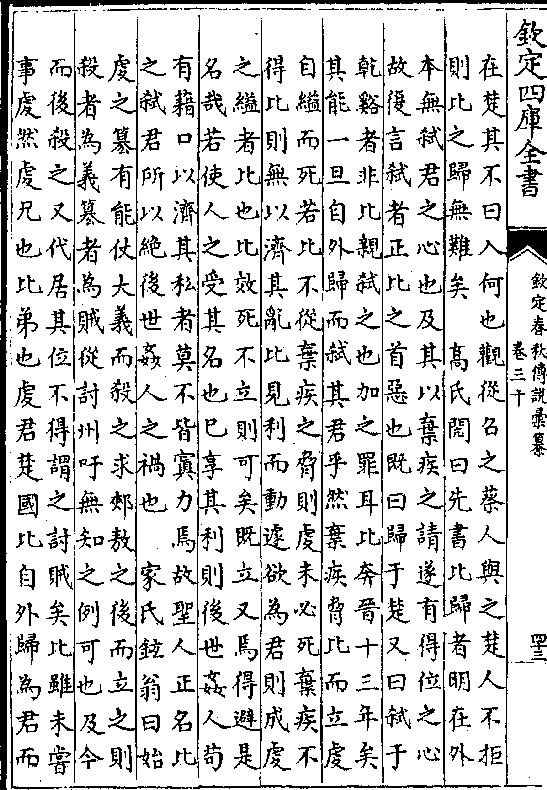 欽定四庫全書
欽定春秋傳說彙纂
卷三十
四三
在楚其不曰入何也觀從召之蔡人與之楚人不拒
則比之歸無難矣　高氏閌曰先書比歸者明在外
本無弑君之心也及其以棄疾之請遂有得位之心
故復言弑者正比之首惡也既曰歸于楚又曰弑于
乾谿者非比親弑之也加之罪耳比奔晉十三年矣
其能一旦自外歸而弑其君乎然棄疾脅比而立虔
自縊而死若比不從棄疾之脅則虔未必死棄疾不
得比則無以濟其亂比見利而動遂欲為君則成虔
之縊者比也比效死不立則可矣既立又焉得避是
名哉若使人之受其名也已享其利則後世姦人苟
有藉口以濟其私者莫不皆寘力焉故聖人正名比
之弑君所以絶後世姦人之禍也　家氏鉉翁曰始
虔之簒有能仗大義而殺之求郟敖之後而立之則
殺者為義簒者為賊從討州吁無知之例可也及今
而後殺之又代居其位不得謂之討賊矣比雖未嘗
事虔然虔兄也比弟也虔君楚國比自外歸為君而